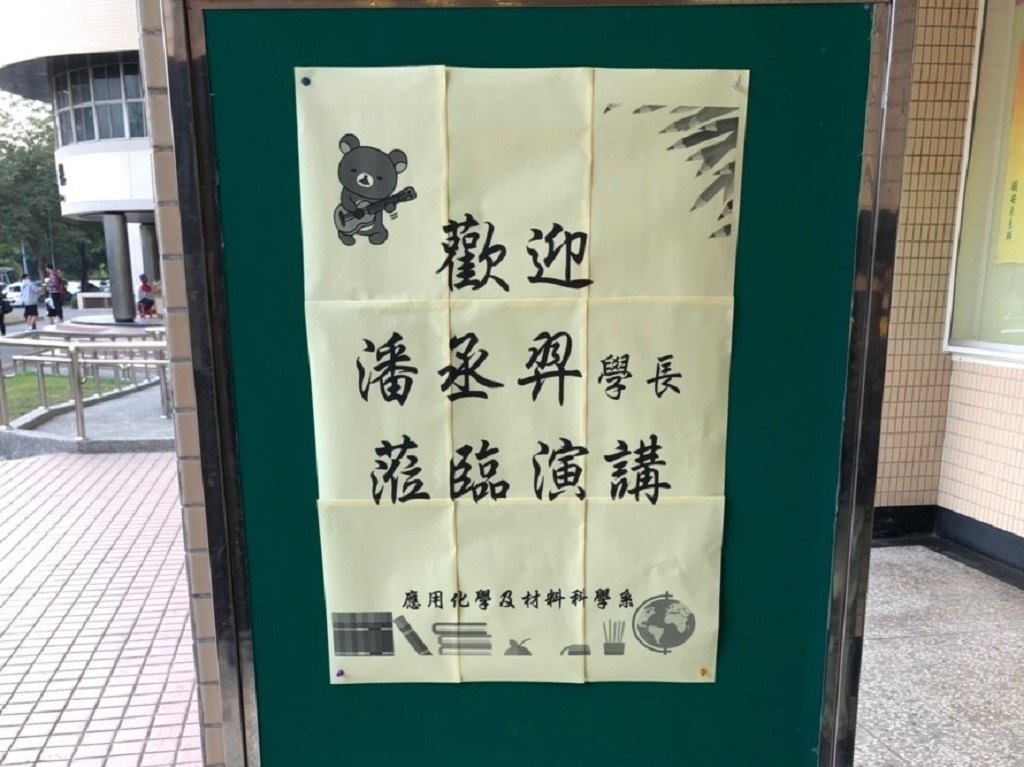 歡迎
潘丞羿學長
蒞臨演講
應用化學及材料科學系